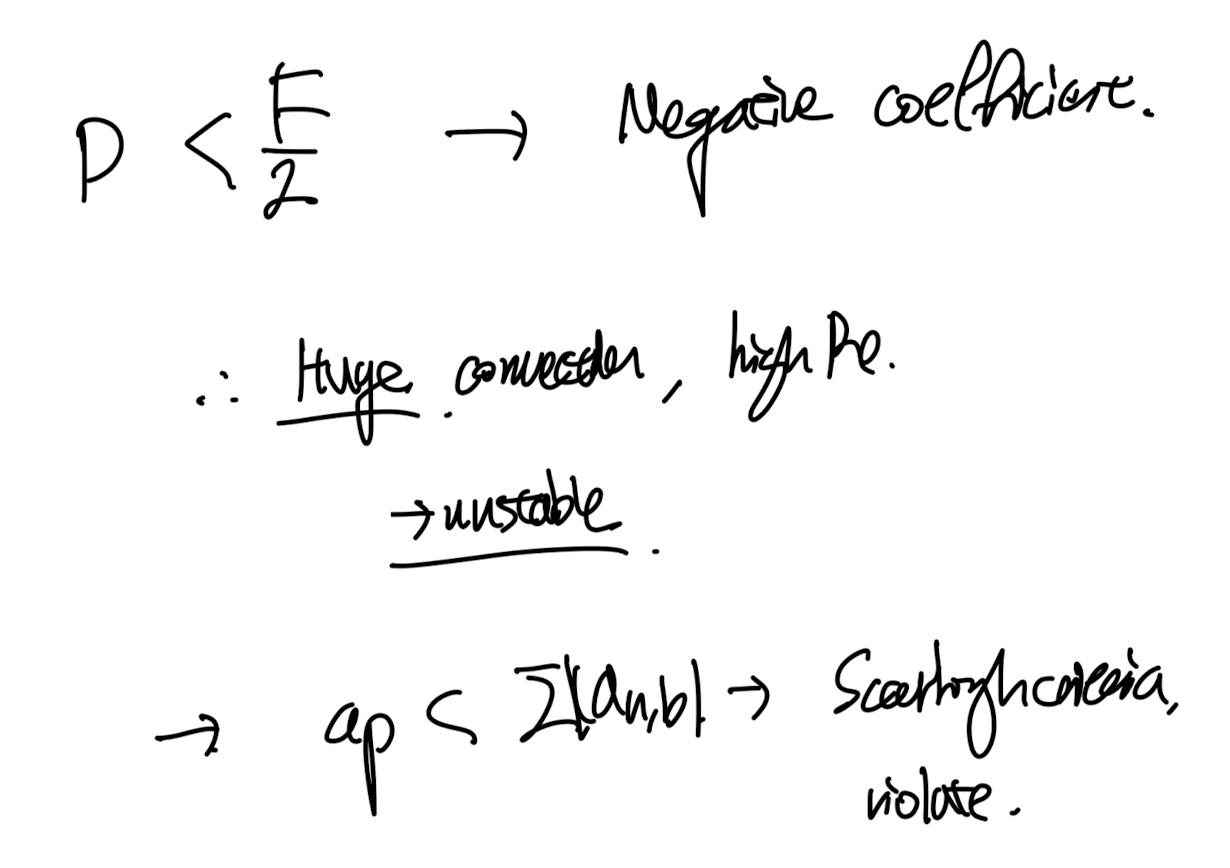 D < F/2 → Negative coefficient.
∴ Huge convection, high Pe.
→ unstable.
→ ap < Σ|an,b| → Scarborough criteria,
violate.